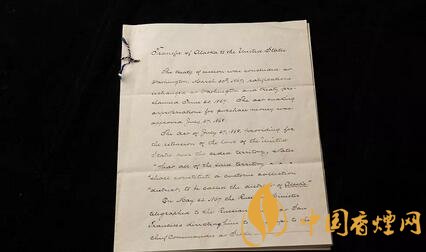 Transfer of Alaska to the United States
The treaty of cession was concluded at
Washington, March 30th, 1867, ratifications
exchanged at Washington and treaty pro-
claimed June 20, 1867. The act making
appropriations for purchase money was
approved July 27, 1868.
The Act of July 27, 1868, providing for
the extension of the laws of the United
States over the ceded territory, states
"That all of the said territory
shall constitute a customs collection
district, to be called the district of Alaska"
On May 1867, the Russian Minister
telegraphed to the Russian at San
Francisco directing him to
Chief Commandant at
中国香烟网